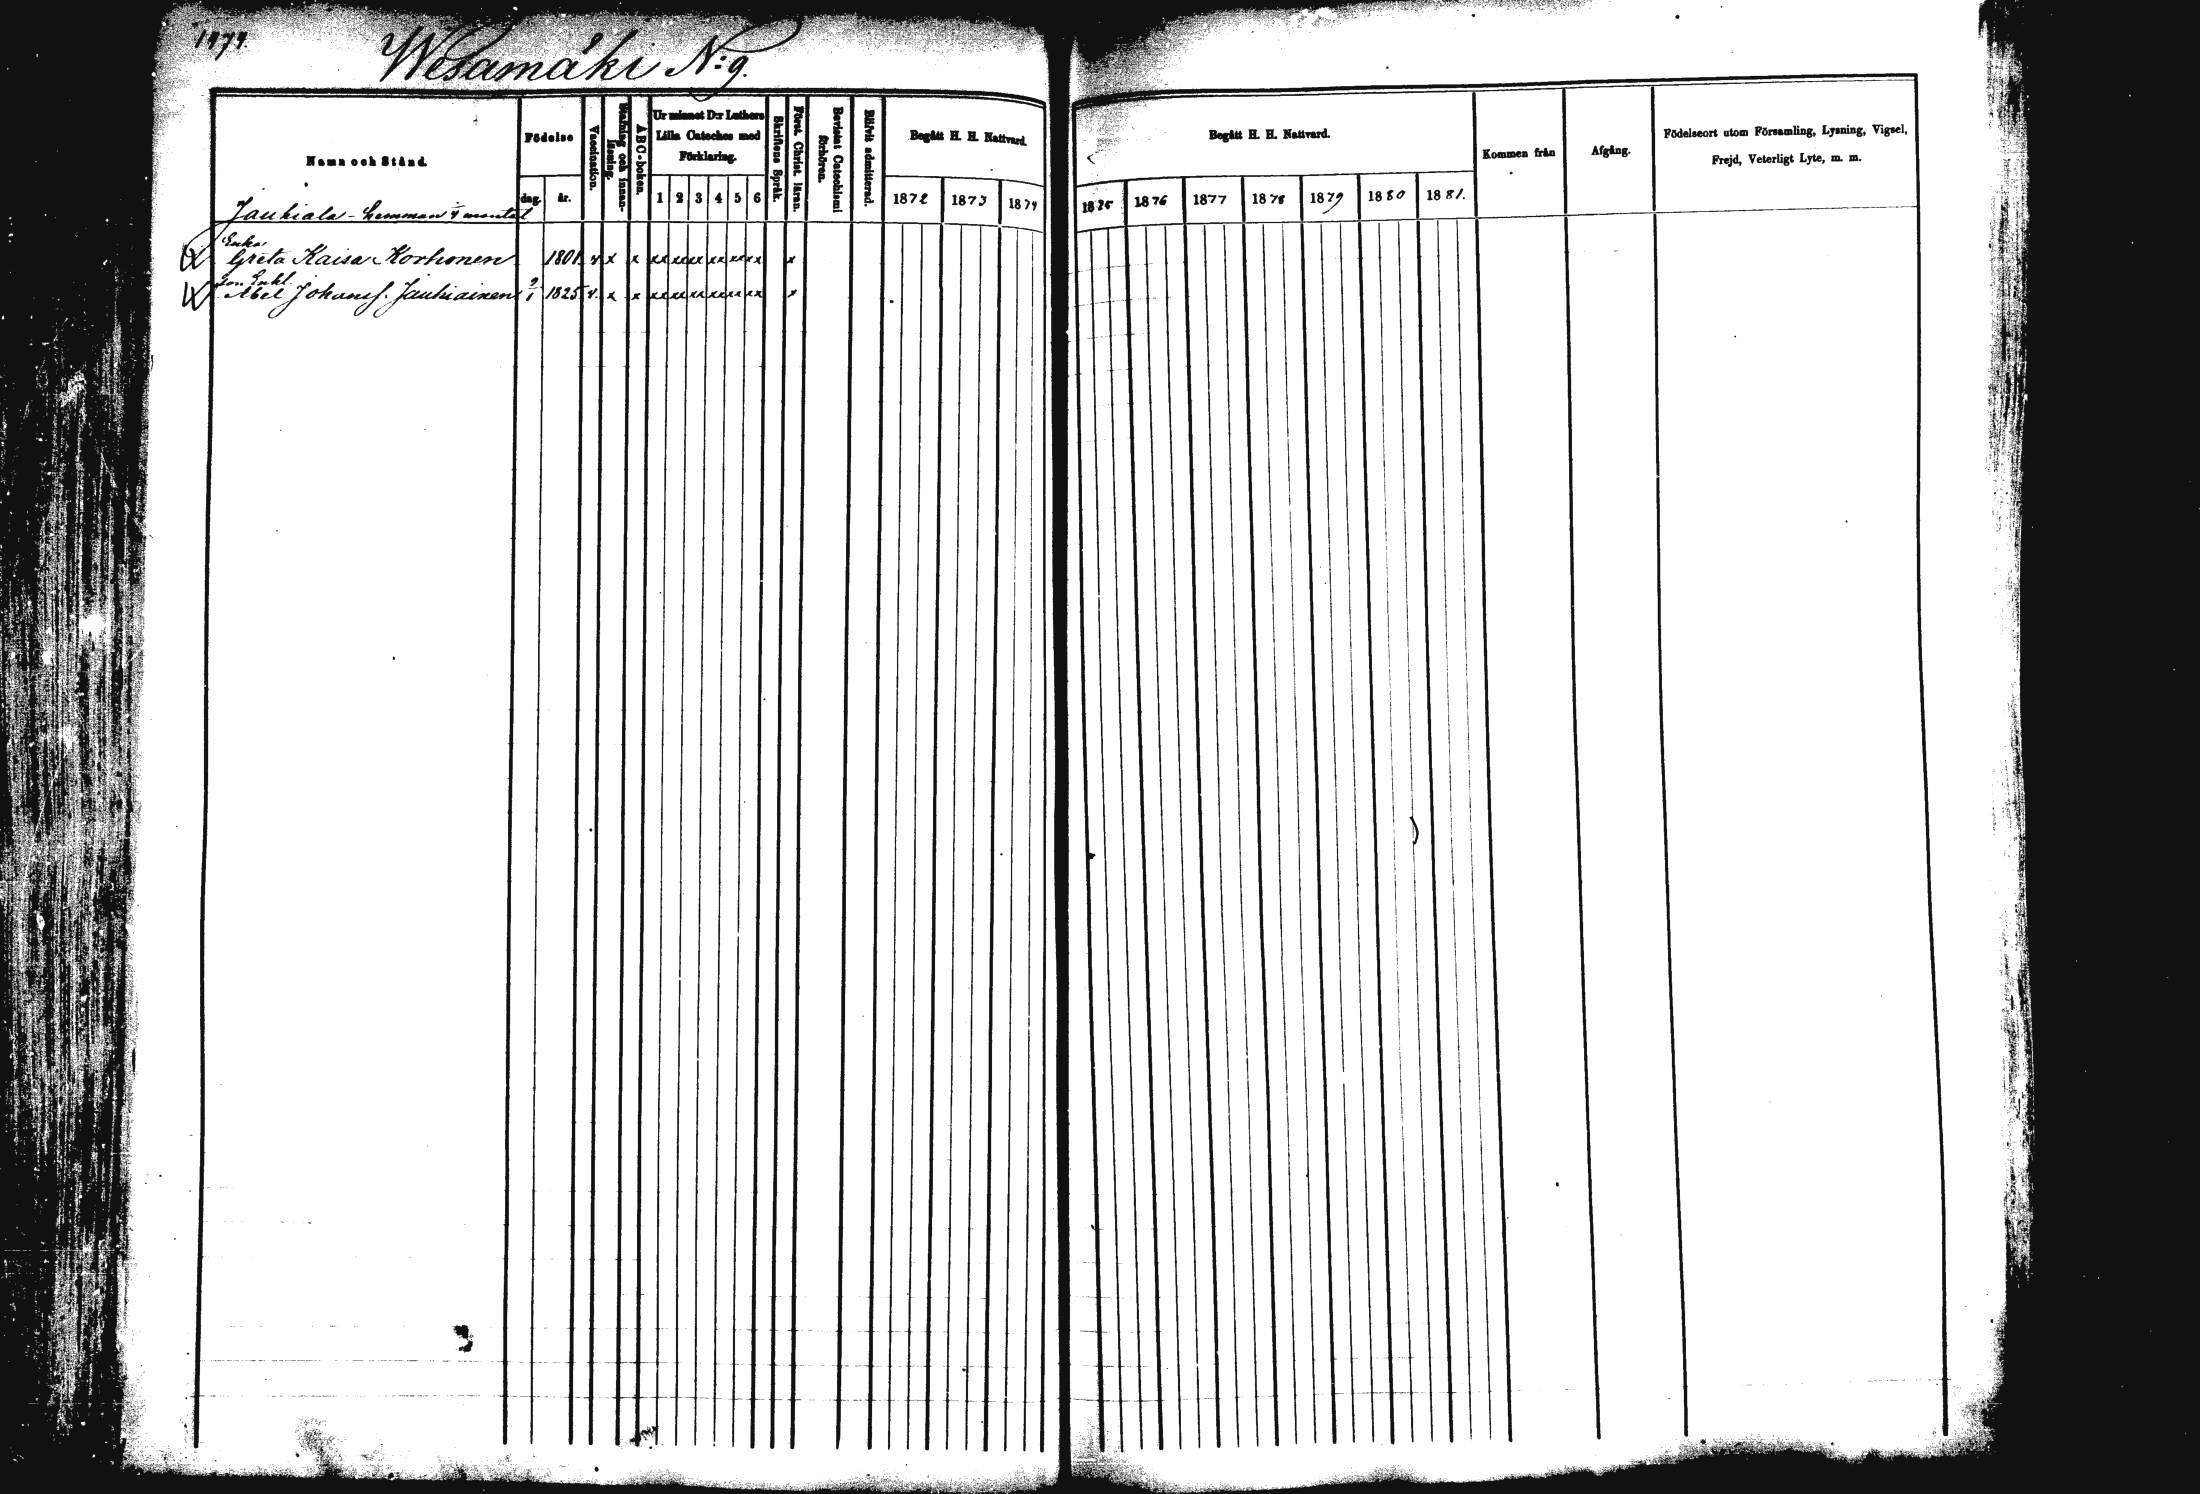 1979.
Wesamäki N:9.
Namn och Stånd.
Födelse
dag.
år.
Vaccination.
Stafning och innan-
läsning.
ABC-boken.
Ur minnet D:r Luthers
Lilla Cateches med
Förklaring.
1 2 3 4 5 6
Skriftens Språk.
Först. Christ. läran.
Bevistat Catechismi
förhören.
Blifvit admitterad.
Begått H. H. Nattvard.
1872 1873 1874
Begått H. H. Nattvard.
1875 1876 1877 1878 1879 1880 1881.
Kommen från
Afgång.
Födelseort utom Församling, Lysning, Vigsel,
Frejd, Veterligt Lyte, m. m.
Jauhiala - hemman 1/4 mantal
Enka
Greta Kaisa Korhonen 1801 v x x xx xx xx xx xx xx x
Son Enkl.
Abel Johansf. Jauhiainen 9/1 1825 v. x x xx xx xx xx xx xx x